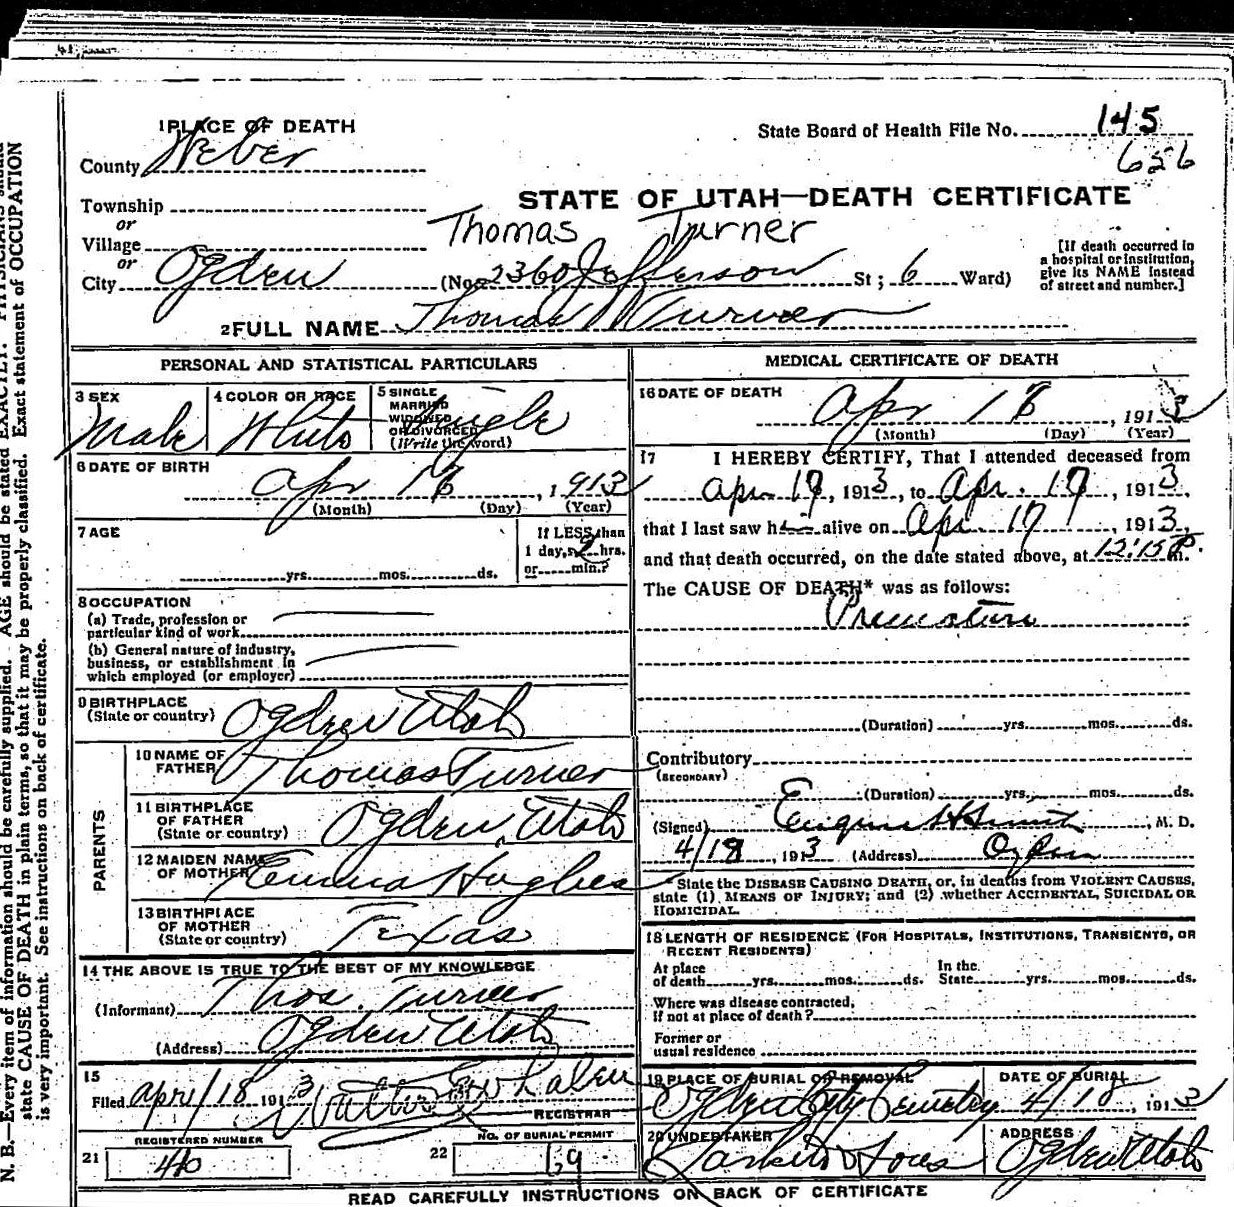 1 PLACE OF DEATH
State Board of Health File No. 145
656
County Weber
STATE OF UTAH—DEATH CERTIFICATE
Township
or
Village
Thomas Turner
or
City Ogden (No. 2360 Jefferson St; 6 Ward)
[If death occurred in
a hospital or institution,
give its NAME instead
of street and number.]
2 FULL NAME Thomas Turner
PERSONAL AND STATISTICAL PARTICULARS
3 SEX
Male
4 COLOR OR RACE
White
5 SINGLE
MARRIED
WIDOWED
OR DIVORCED
(Write the word)
Single
6 DATE OF BIRTH
Apr 1913
(Month) (Day) (Year)
7 AGE
yrs. mos. ds.
If LESS than
1 day, 2 hrs.
or min.?
8 OCCUPATION
(a) Trade, profession or
particular kind of work
(b) General nature of industry,
business, or establishment in
which employed (or employer)
9 BIRTHPLACE
(State or country) Ogden Utah
PARENTS
10 NAME OF
FATHER Thomas Turner
11 BIRTHPLACE
OF FATHER
(State or country) Ogden, Utah
12 MAIDEN NAME
OF MOTHER Emma Hughes
13 BIRTHPLACE
OF MOTHER
(State or country) Texas
14 THE ABOVE IS TRUE TO THE BEST OF MY KNOWLEDGE
(Informant) Thos. Turner
(Address) Ogden Utah
15
Filed Apr/18 1913
REGISTRAR
REGISTERED NUMBER
21 46
NO. OF BURIAL PERMIT
22 69
MEDICAL CERTIFICATE OF DEATH
16 DATE OF DEATH
Apr 1913
(Month) (Day) (Year)
17 I HEREBY CERTIFY, That I attended deceased from
Apr 17, 1913, to Apr. 17, 1913,
that I last saw h alive on Apr 17, 1913,
and that death occurred, on the date stated above, at 12:15 P. m.
The CAUSE OF DEATH* was as follows:
Premature
(Duration) yrs. mos. ds.
Contributory
(SECONDARY)
(Duration) yrs. mos. ds.
(Signed) Eugene H Smith, M. D.
4/18, 1913 (Address) Ogden
* State the DISEASE CAUSING DEATH, or, in deaths from VIOLENT CAUSES,
state (1) MEANS OF INJURY; and (2) whether ACCIDENTAL, SUICIDAL OR
HOMICIDAL.
18 LENGTH OF RESIDENCE (FOR HOSPITALS, INSTITUTIONS, TRANSIENTS, OR
RECENT RESIDENTS)
At place
of death yrs. mos. ds.
In the
State yrs. mos. ds.
Where was disease contracted,
if not at place of death?
Former or
usual residence
19 PLACE OF BURIAL OR REMOVAL
Ogden City Cemetery
DATE OF BURIAL
4/18, 1913
20 UNDERTAKER
Larkin & Sons
ADDRESS
Ogden Utah
READ CAREFULLY INSTRUCTIONS ON BACK OF CERTIFICATE
N. B.—Every item of information should be carefully supplied. AGE should be stated EXACTLY. PHYSICIANS should
state CAUSE OF DEATH in plain terms, so that it may be properly classified. Exact statement of OCCUPATION
is very important. See instructions on back of certificate.